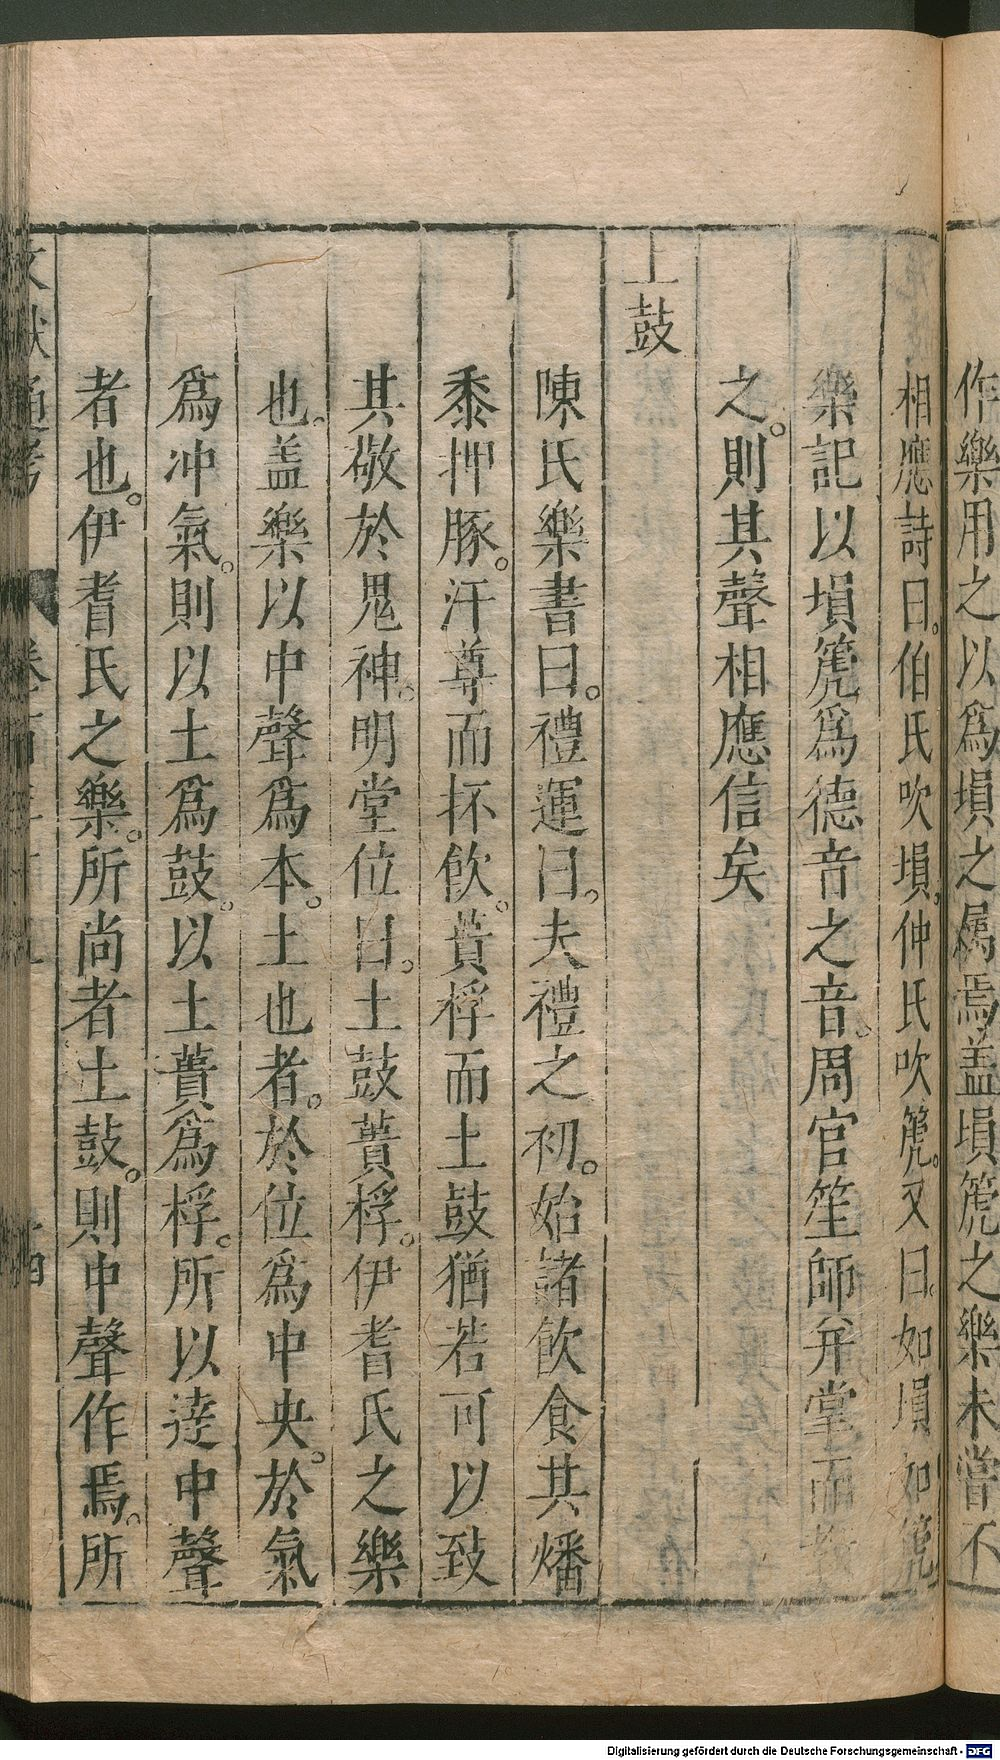 作樂用之以爲塤之属焉盖塤篪之樂未嘗不
相應詩曰伯氏吹塤仲氏吹篪又曰如塤如篪
樂記以塤篪爲德音之音周官笙師并掌而
之則其聲相應信矣
土鼓
陳氏樂書曰禮運曰夫禮之初始諸飲食其燔
黍押豚汙尊而抔飲蕢桴而土鼓猶若可以致
其敬於鬼神明堂位曰土鼓蕢桴伊耆氏之樂
也盖樂以中聲爲本土也者於位爲中央於氣
爲冲氣則以土爲鼓以土蕢爲桴所以達中聲
者也伊耆氏之樂所尚者土鼓則中聲作焉所
文獻通考 卷百
Digitalisierung gefördert durch die Deutsche Forschungsgemeinschaft - DFG